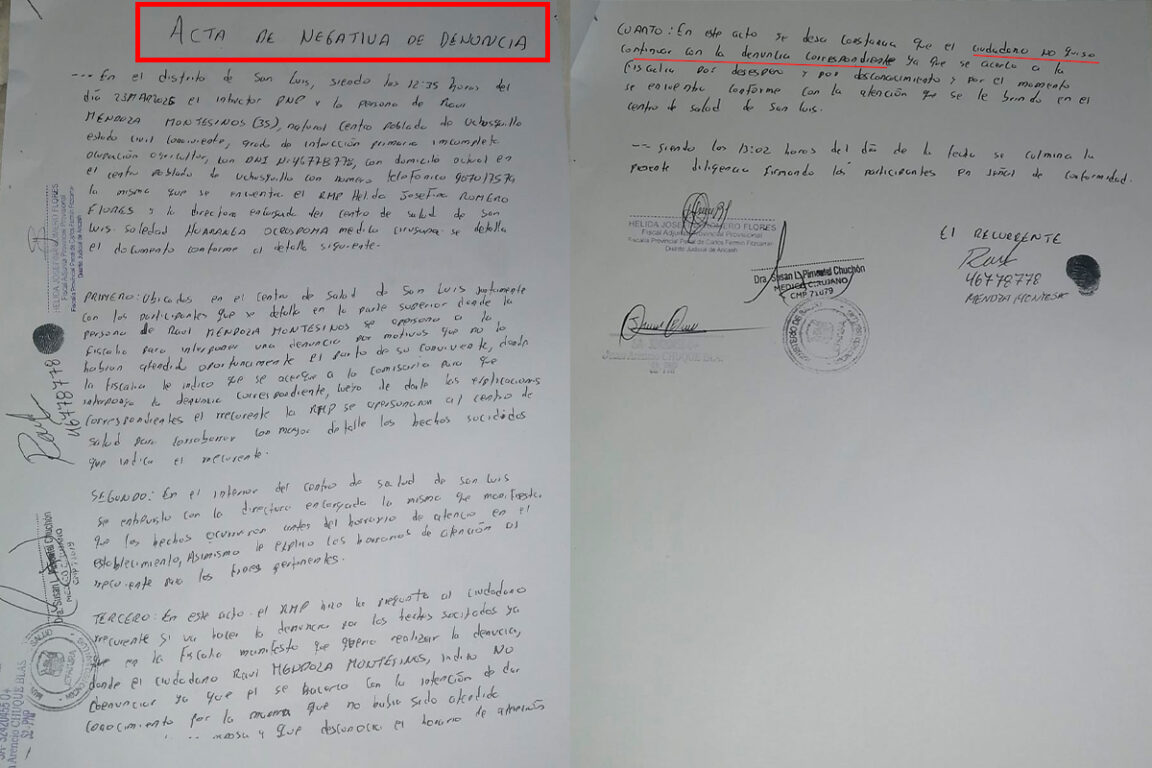 ACTA DE NEGATIVA DE DENUNCIA
--- En el distrito de San Luis, siendo las 12:35 horas del
día 23MAR2026 el instructor PNP y la persona de Raul
MENDOZA MONTESINOS (35), natural Centro Poblado de Uchusquillo
estado civil conviviente, grado de instrucción primaria incompleta
ocupación agricultor, con DNI N° 46778778, con domicilio actual en
el centro poblado de Uchusquillo con numero telefonico
la misma que se encuentra el RMP Helida Josefina ROMERO
FLORES y la directora encargada del centro de salud de San
Luis. Soledad HUARANGA OCROSPOMA medico cirujano se detalla
el documento conforme al detalle siguiente.
PRIMERO: Ubicados en el Centro de Salud de San Luis juntamente
con los participantes que se detalla en la parte superior donde la
persona de Raul MENDOZA MONTESINOS se apersono a la
Fiscalia para interponer una denuncia por motivos que no lo
habian atendido oportunamente el parto de su conviviente, donde
la fiscalia le indico que se acerque a la comisaria para que
interponga la denuncia correspondiente, luego de darle las explicaciones
correspondientes el recurente la RMP se apersonaron al centro de
salud para corroborar con mayor detalle los hechos sucidados
que indica el recurente.
SEGUNDO: En el interior del centro de salud de San Luis
se entrevisto con la directora encargada la misma que manifiesta
que los hechos ocurrieron antes del horario de atencio en el
establecimiento, Asimismo le explico los horarios de atención al
recurente para los fines pertinentes.
TERCERO: En este acto el RMP hizo la pregunta al ciudadano
recurente si va hacer la denuncia por los hechos sucitados ya
que en la fiscalia manifesto que queria realizar la denuncia,
donde el ciudadano Raul MENDOZA MONTESINOS, indico NO
denunciar ya que el se hacerco con la intención de dar
conocimiento por la manera que no habia sido atendido
y que desconocia el horario de atención
CUARTO: En este acto se deja constancia que el ciudadano no quiso
continuar con la denuncia correspondiente ya que se acerco a la
fiscalia por desespero y por desconocimiento y por el momento
se encuentra conforme con la atención que se le brindo en el
centro de salud de San Luis.
--- Siendo las 13:02 horas del día de la fecha se culmina la
presente diligencia firmando los participantes en señal de conformidad.
HELIDA JOSEFINA ROMERO FLORES
Fiscal Adjunta Provincial Provisional
Fiscalía Provincial Penal de Carlos Fermin Fitzcarrald
Distrito Judicial de Ancash
Dra. Susan L. Pimentel Chuchón
MEDICO CIRUJANO
CMP 71079
CHUQUE BLAS
S2 PNP
El RECURENTE
46778778
MENDOZA MONTESI
HELIDA JOSEFINA ROMERO FLORES
Fiscal Adjunta Provincial Provisional
Fiscalía Provincial Penal de Carlos Fermin Fitzcarrald
Distrito Judicial de Ancash
46778778
Dra. Susan L. Pimentel Chuchón
MEDICO CIRUJANO
CMP 71079
CHUQUE BLAS
S2 PNP